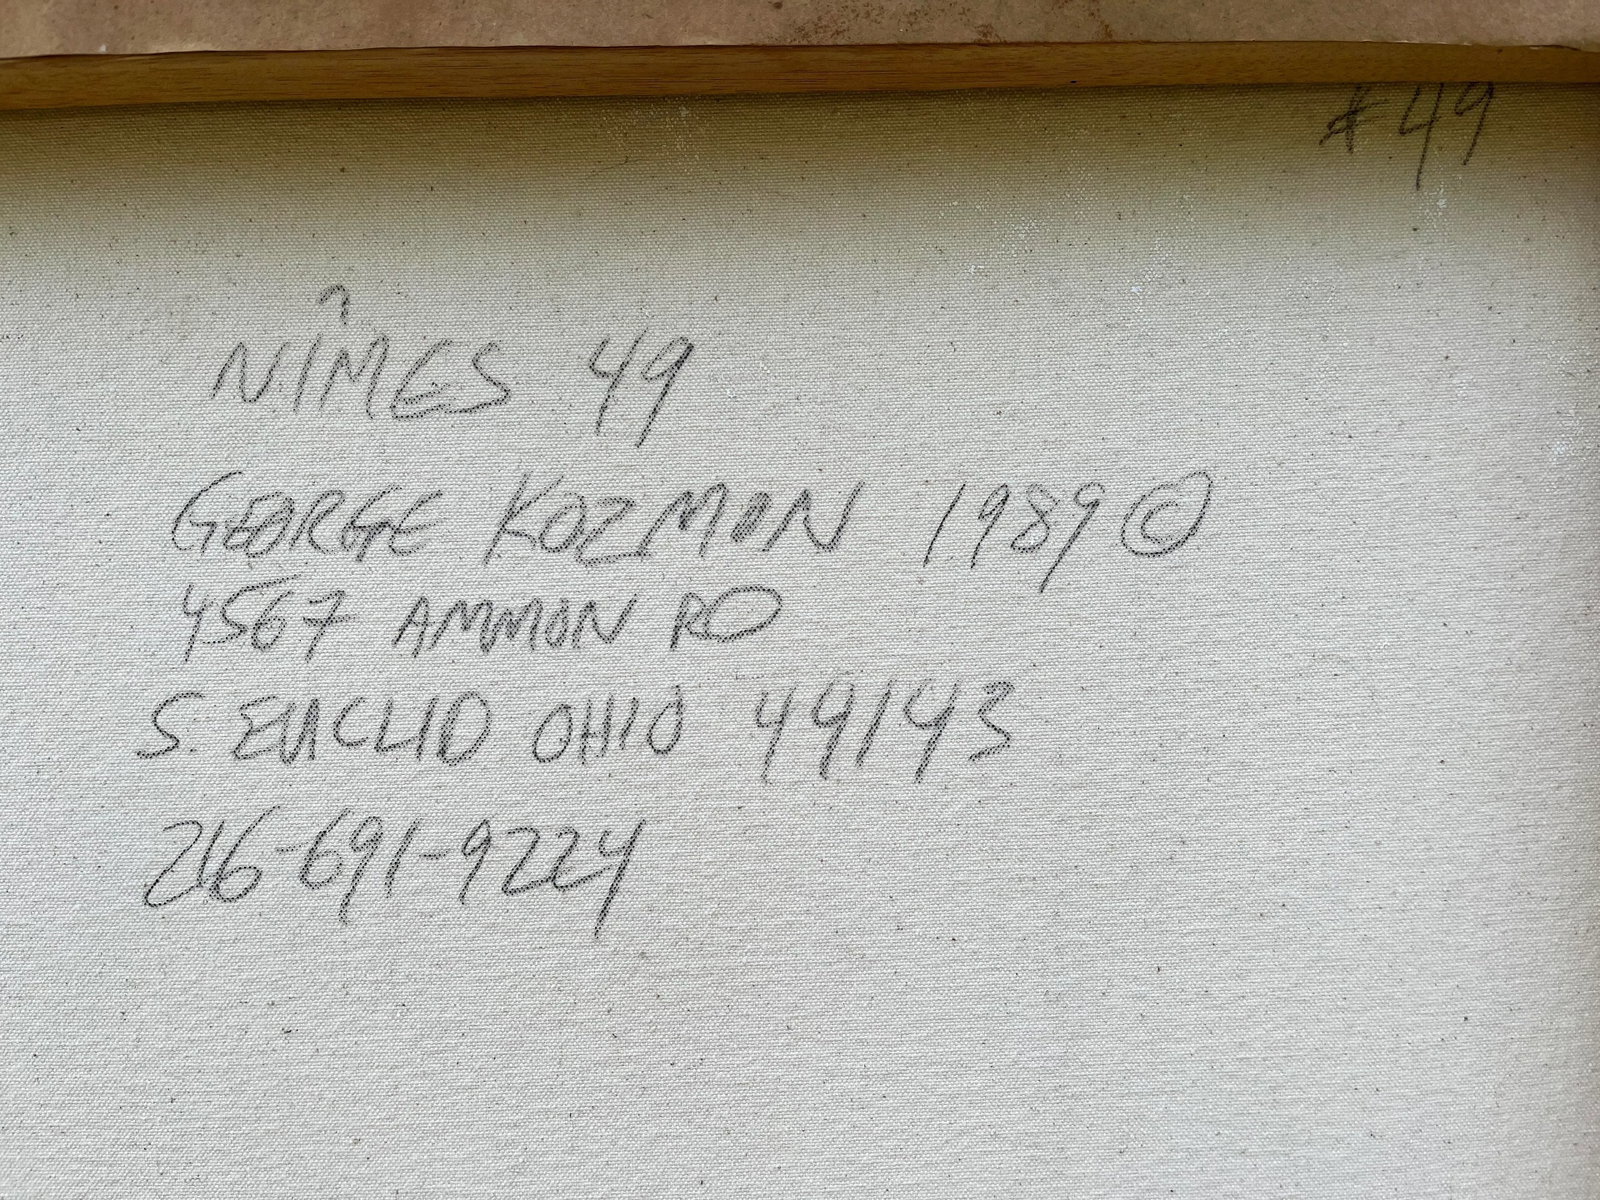 #49
NÎMES 49
GEORGE KOZMON 1989 ©
4567 AMMON RD
S. EUCLID OHIO 44143
216-691-9224